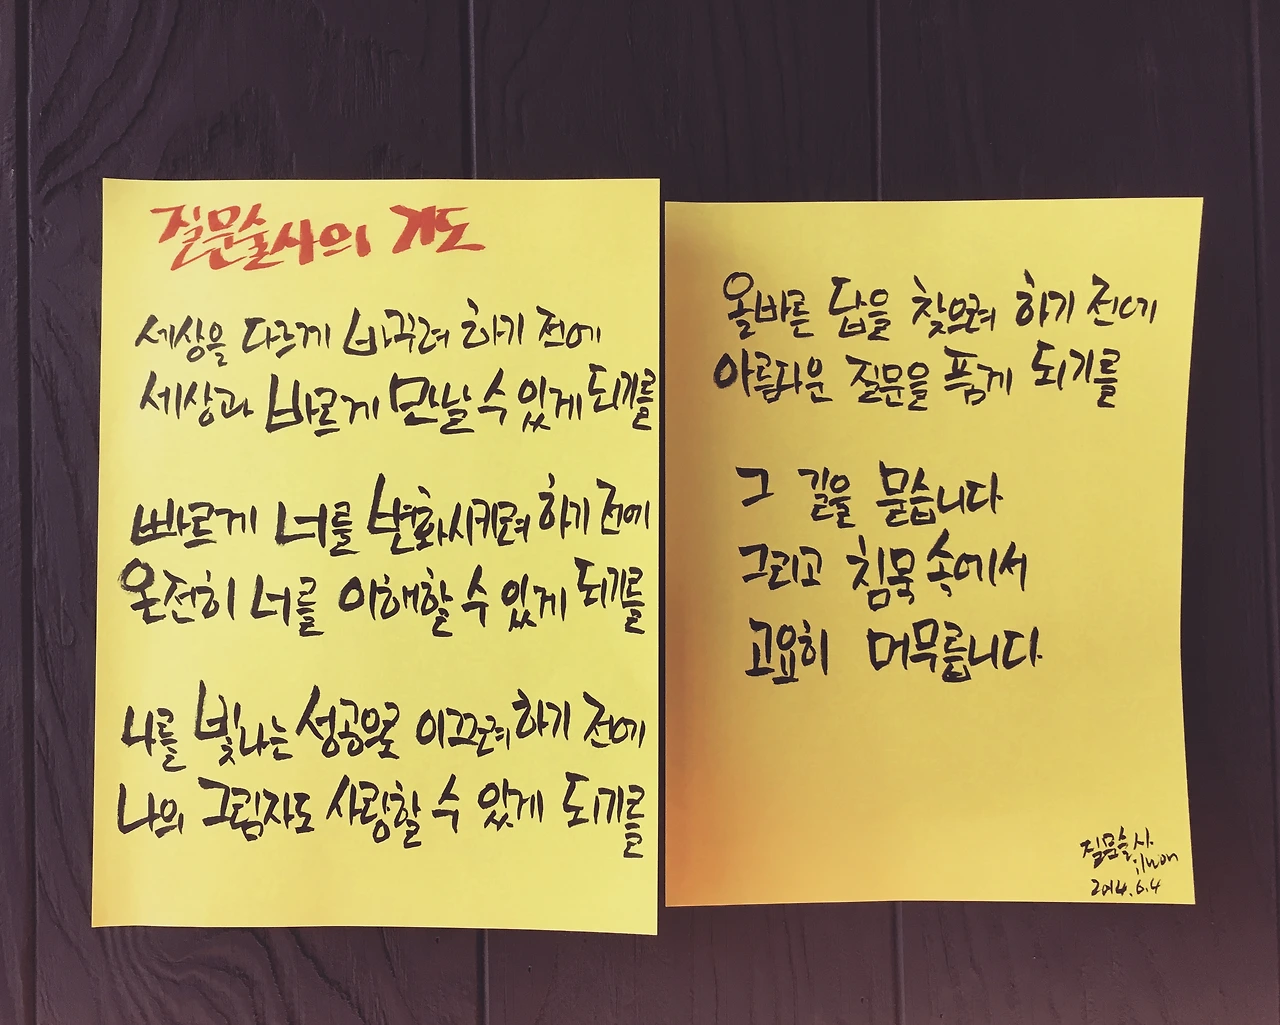 질문술사의 기도
세상을 다르게 바꾸려 하기 전에
세상과 바르게 만날 수 있게 되기를
빠르게 너를 변화시키려 하기 전에
온전히 너를 이해할 수 있게 되기를
나를 빛나는 성공으로 이끄려 하기 전에
나의 그림자도 사랑할 수 있게 되기를
올바른 답을 찾으려 하기 전에
아름다운 질문을 품게 되기를
그 길을 묻습니다
그리고 침묵 속에서
고요히 머무릅니다
질문술사
ilwon
2014.6.4